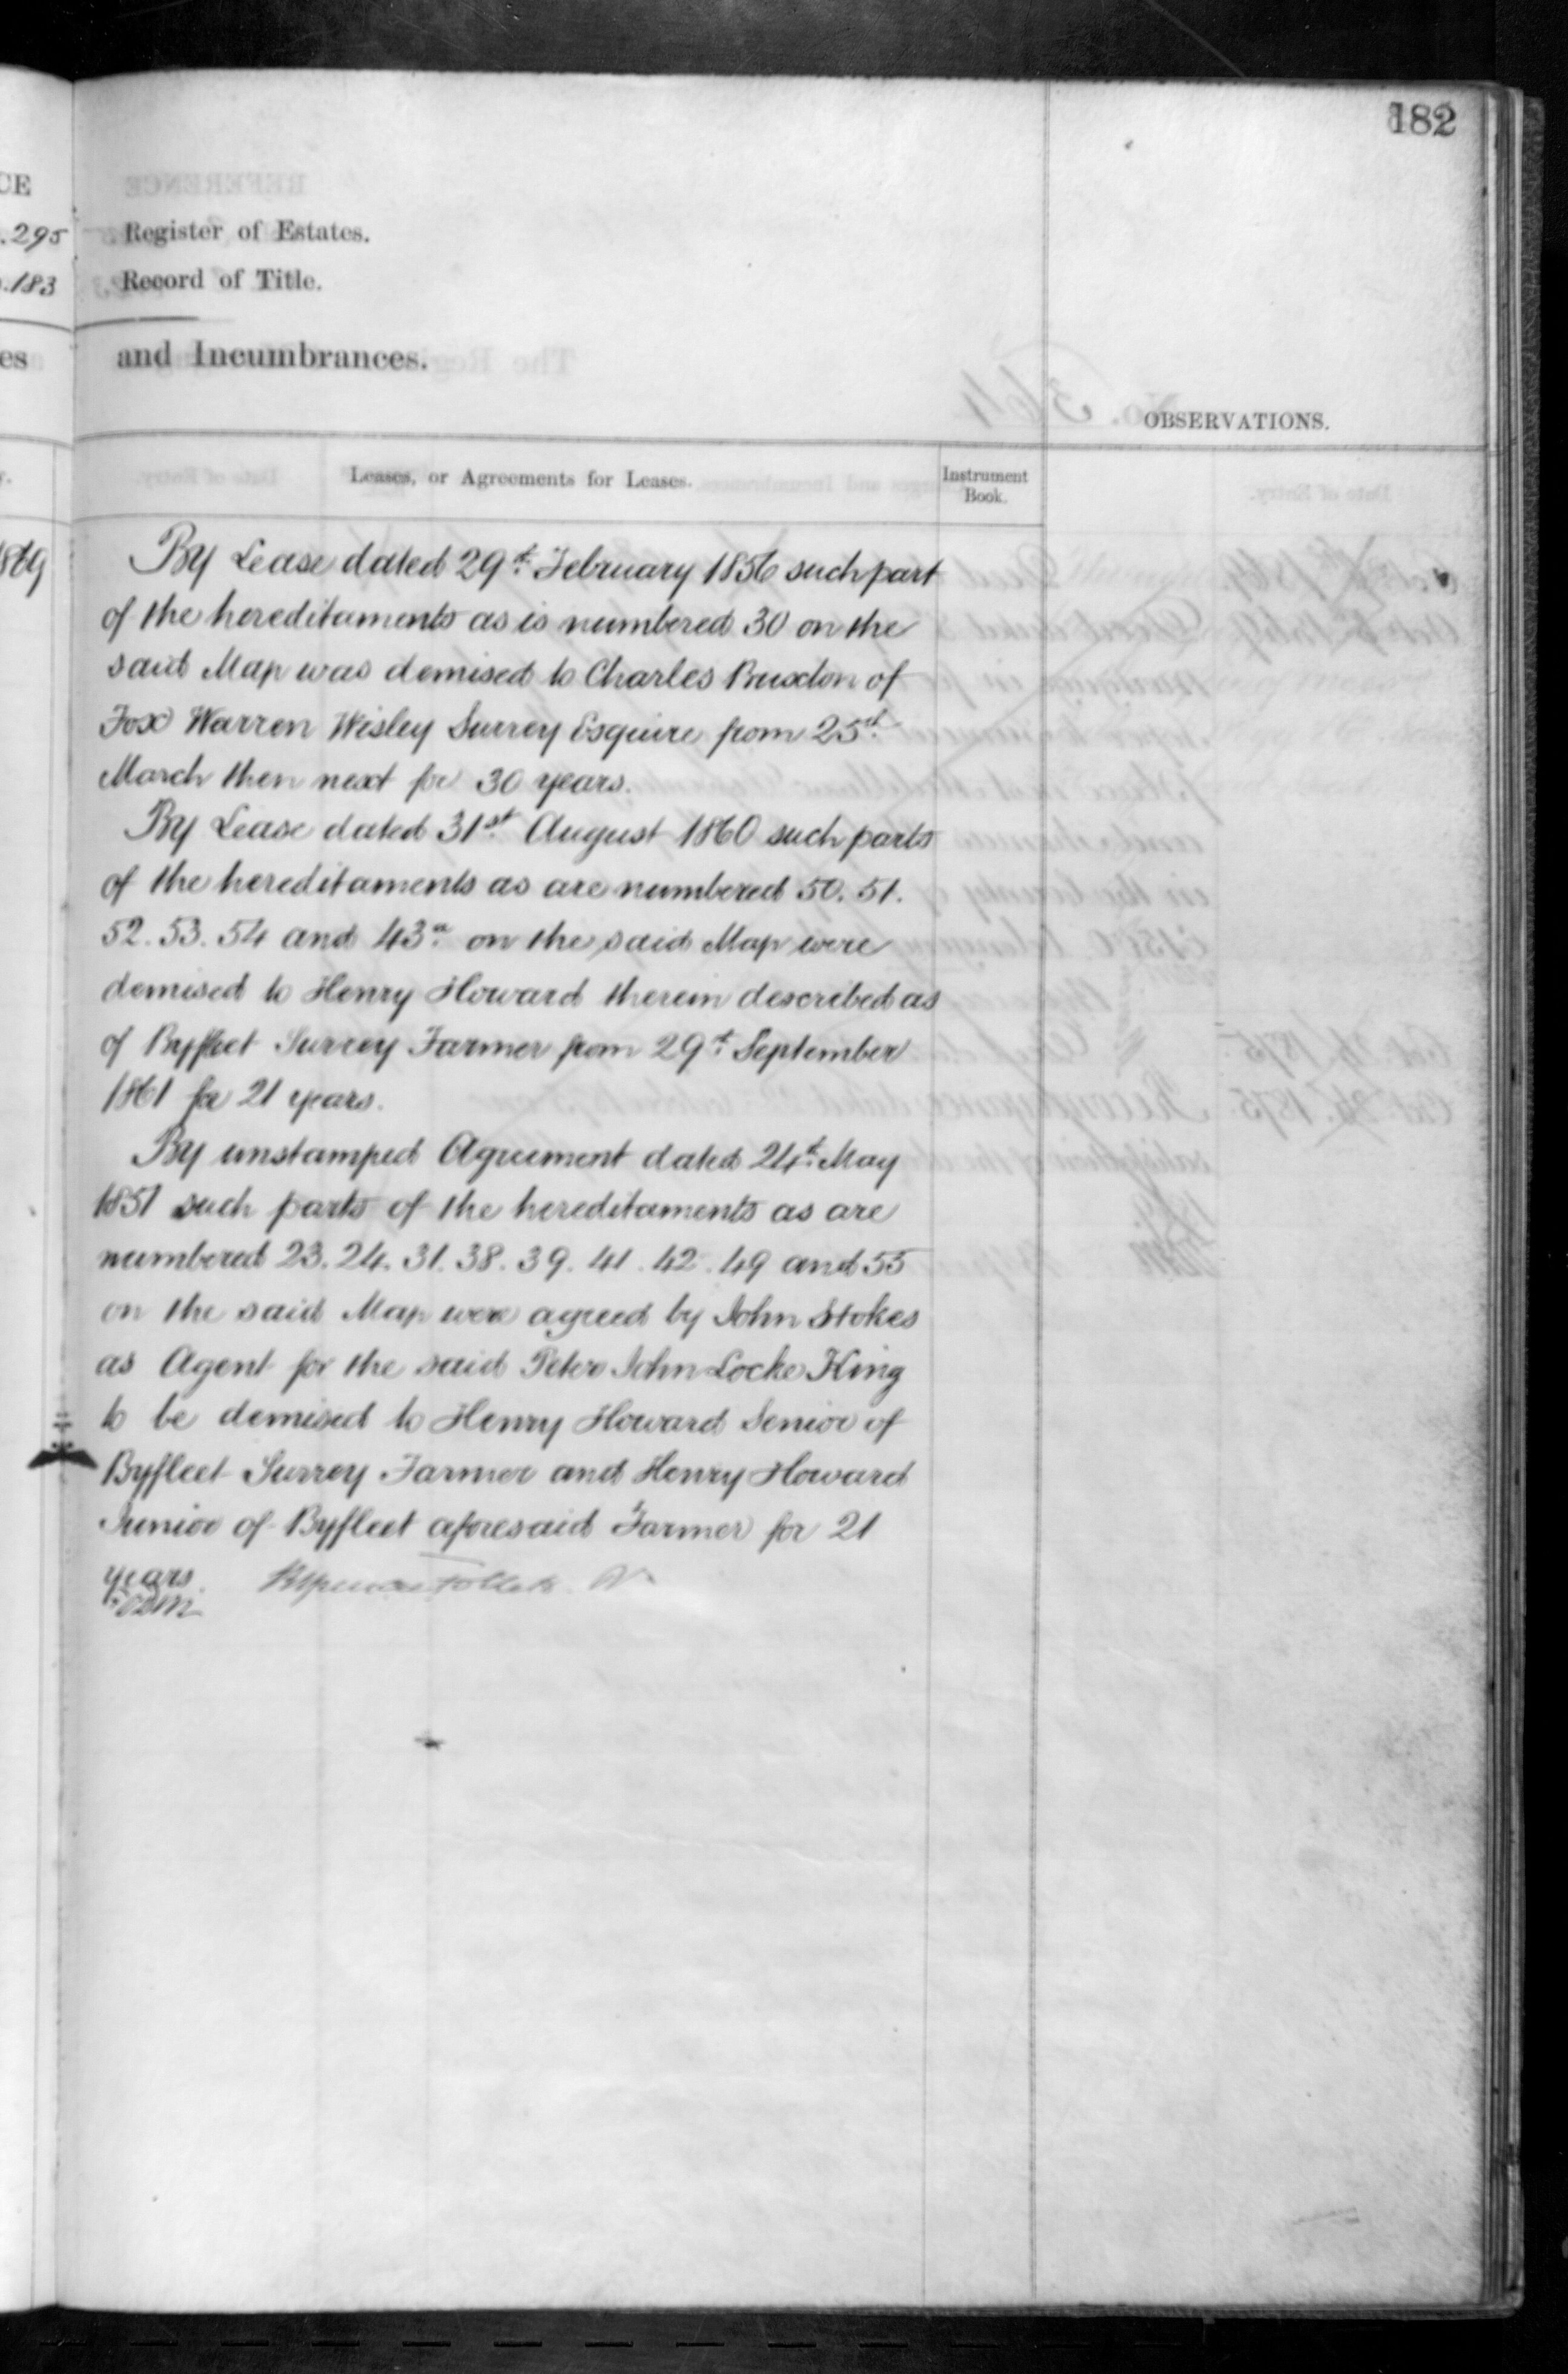 182
CE
.295
.183
es
1869
Register of Estates.
Record of Title.
and Incumbrances.
OBSERVATIONS.
Leases, or Agreements for Leases.
Instrument
Book.
By Lease dated 29th February 1856 such part
of the hereditaments as is numbered 30 on the
said Map was demised to Charles Buxton of
Fox Warren Wisley Surrey Esquire from 25th
March then next for 30 years.
By Lease dated 31st August 1860 such parts
of the hereditaments as are numbered 50. 51.
52. 53. 54 and 43a on the said Map were
demised to Henry Howard therein described as
of Byfleet Surrey Farmer from 29th September
1861 for 21 years.
By unstamped Agreement dated 24th May
1851 such parts of the hereditaments as are
numbered 23. 24. 31. 38. 39. 41. 42. 49 and 55
on the said Map were agreed by John Stokes
as Agent for the said Peter John Locke King
to be demised to Henry Howard Senior of
Byfleet Surrey Farmer and Henry Howard
Junior of Byfleet aforesaid Farmer for 21
years.